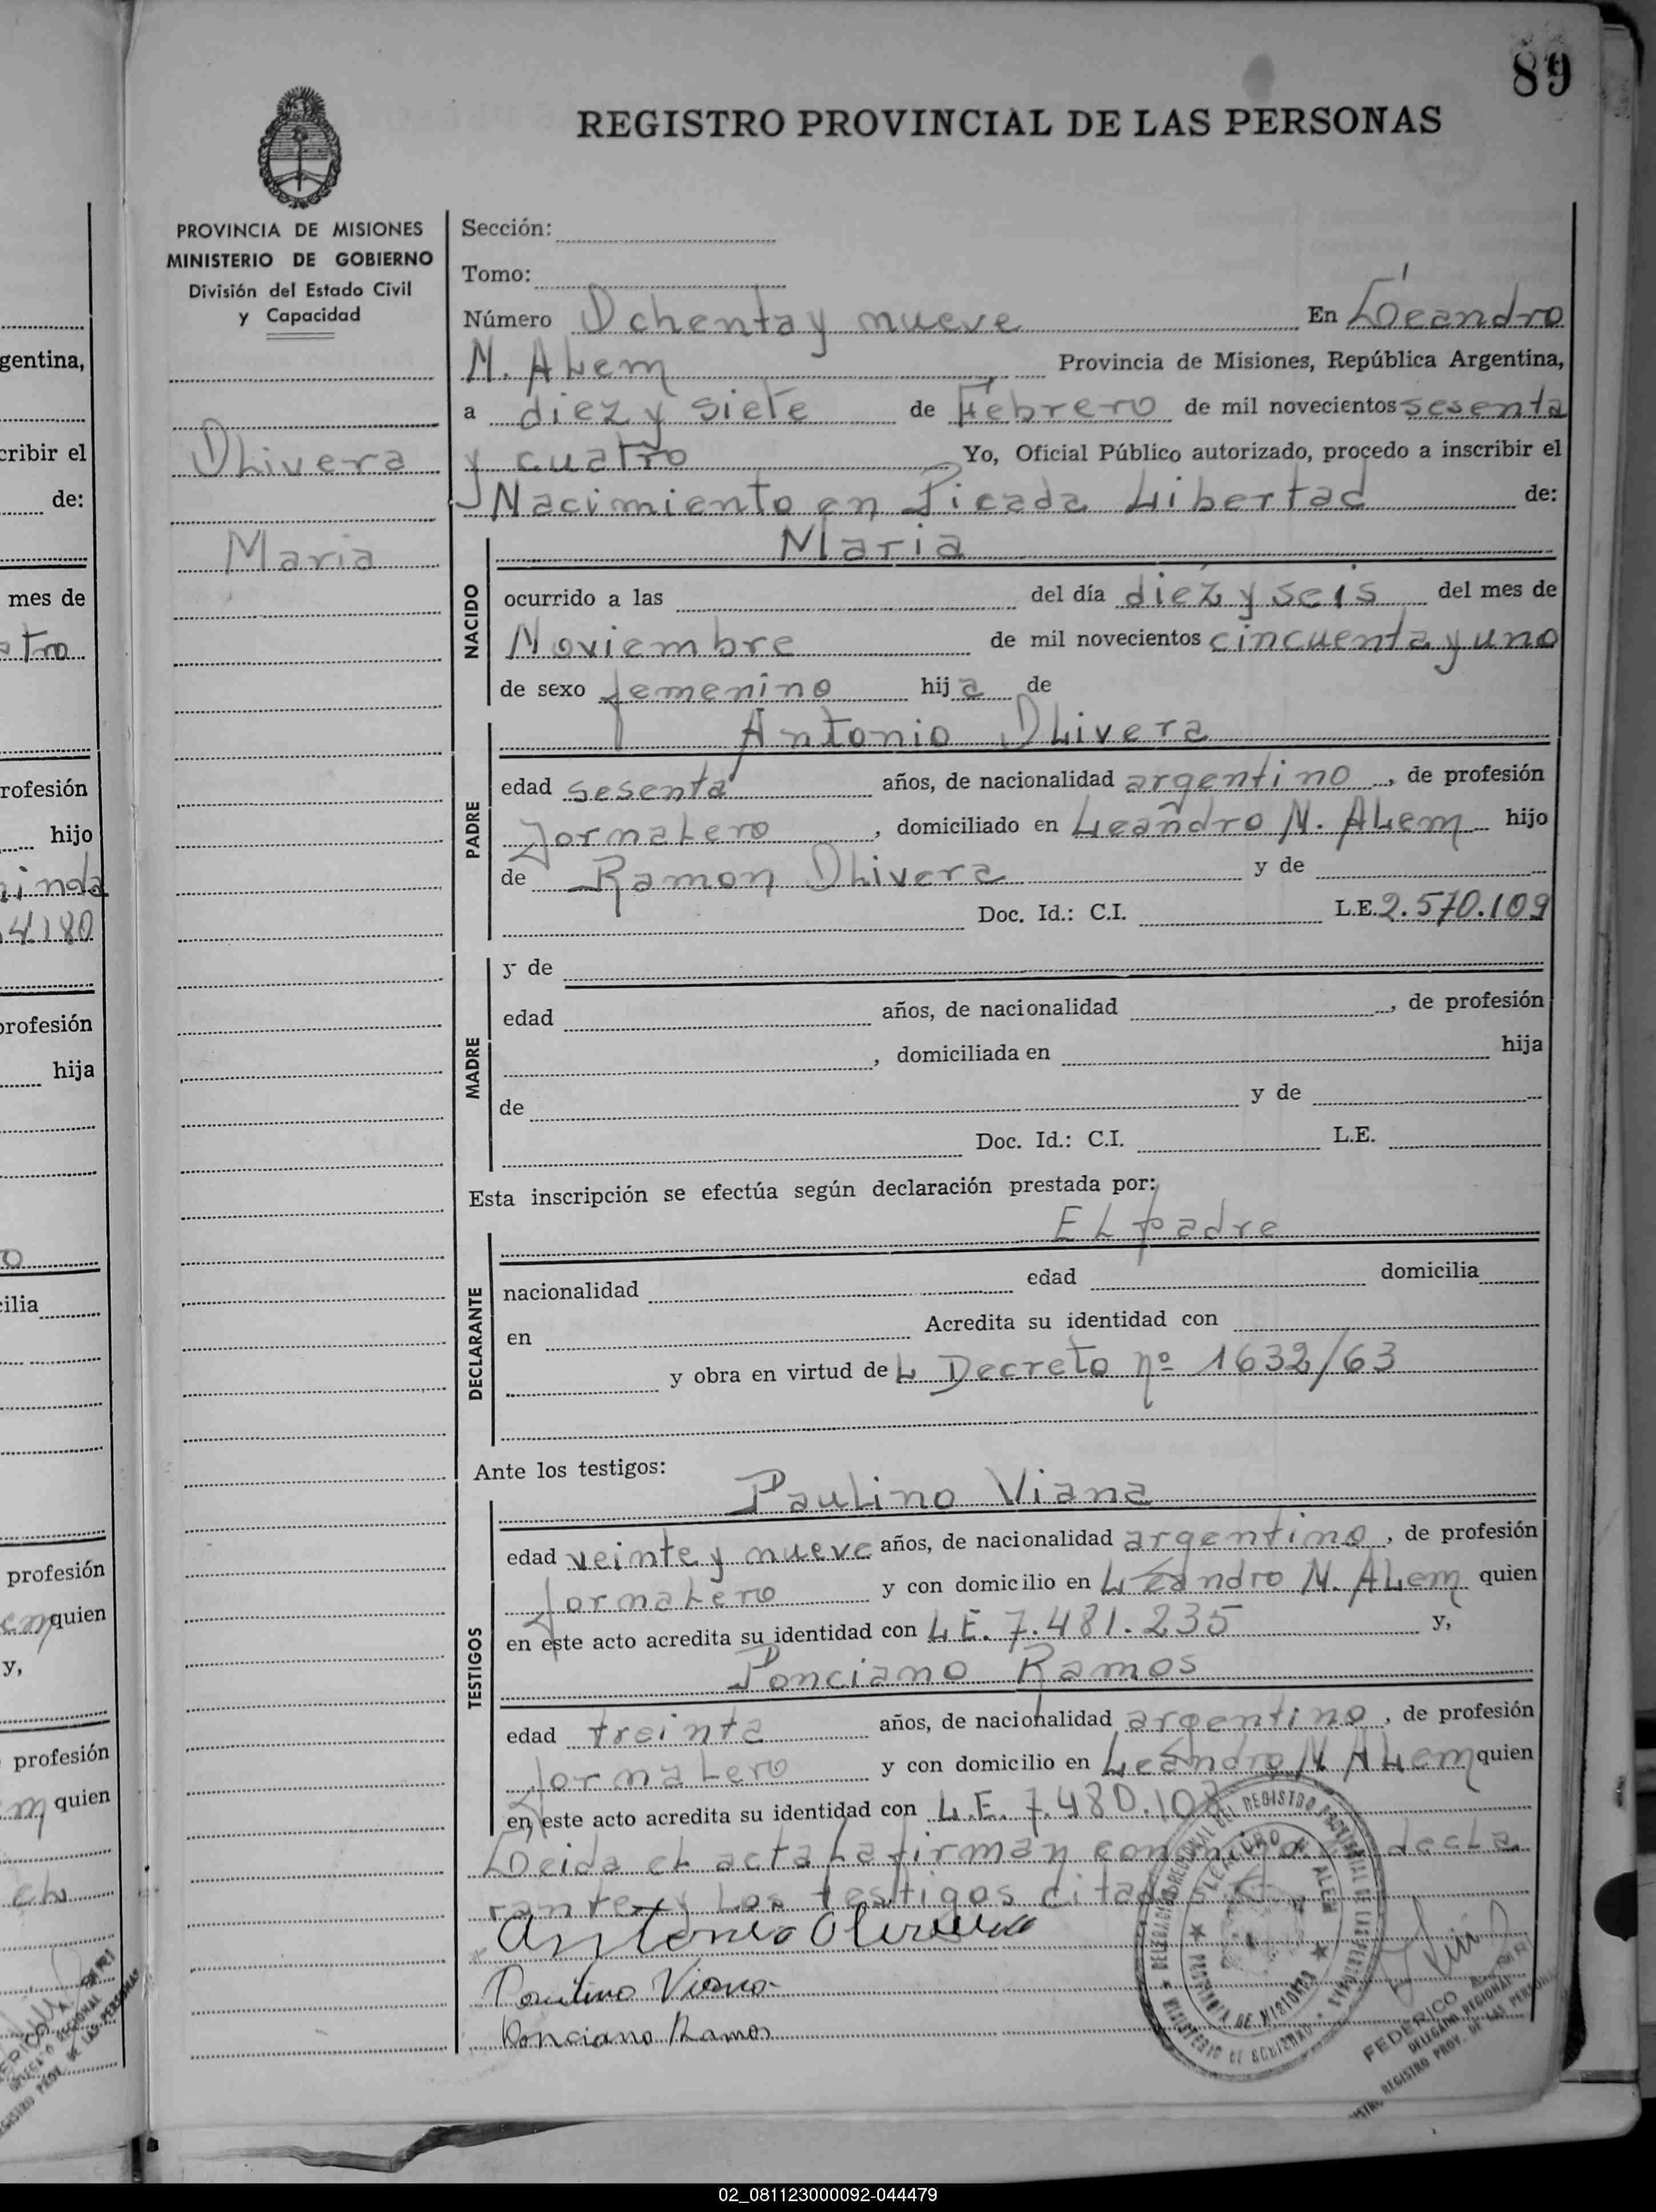 89
REGISTRO PROVINCIAL DE LAS PERSONAS
PROVINCIA DE MISIONES
MINISTERIO DE GOBIERNO
División del Estado Civil
y Capacidad
Olivera
Maria
Sección:
Tomo:
Número Ochenta y nueve En Leandro
N. Alem Provincia de Misiones, República Argentina,
a diez y siete de Febrero de mil novecientos sesenta
y cuatro Yo, Oficial Público autorizado, procedo a inscribir el
Nacimiento en Picada Libertad de:
NACIDO
Maria
ocurrido a las del día diez y seis del mes de
Noviembre de mil novecientos cincuenta y uno
de sexo femenino hija de
PADRE
Antonio Olivera
edad sesenta años, de nacionalidad argentino, de profesión
Jornalero, domiciliado en Leandro N. Alem hijo
de Ramon Olivera y de
Doc. Id.: C.I. L.E. 2.570.109
MADRE
y de
edad años, de nacionalidad , de profesión
, domiciliada en hija
de y de
Doc. Id.: C.I. L.E.
Esta inscripción se efectúa según declaración prestada por:
El padre
DECLARANTE
nacionalidad edad domicilia
en Acredita su identidad con
y obra en virtud del Decreto nº 1632/63
Ante los testigos:
TESTIGOS
Paulino Viana
edad veinte y nueve años, de nacionalidad argentino, de profesión
Jornalero y con domicilio en Leandro N. Alem quien
en este acto acredita su identidad con L.E. 7.481.235 y,
Ponciano Ramos
edad treinta años, de nacionalidad argentino, de profesión
Jornalero y con domicilio en Leandro N Alem quien
en este acto acredita su identidad con L.E. 7.480.10
Leida el acta la firman conmigo decla
rante y los testigos citados
Antonio Olivera
Paulino Viana
Ponciano Ramos
DEL REGISTRO PROVINCIAL DE LAS PERSONAS
LEANDRO N. ALEM
PROVINCIA DE MISIONES
MINISTERIO DE GOBIERNO
FEDERICO
DELEGADO REGIONAL
REGISTRO PROV. DE LAS PERSONAS
gentina,
cribir el
de:
mes de
rofesión
hijo
4.180
profesión
hija
cilia
profesión
quien
y,
profesión
quien
02_081123000092-044479